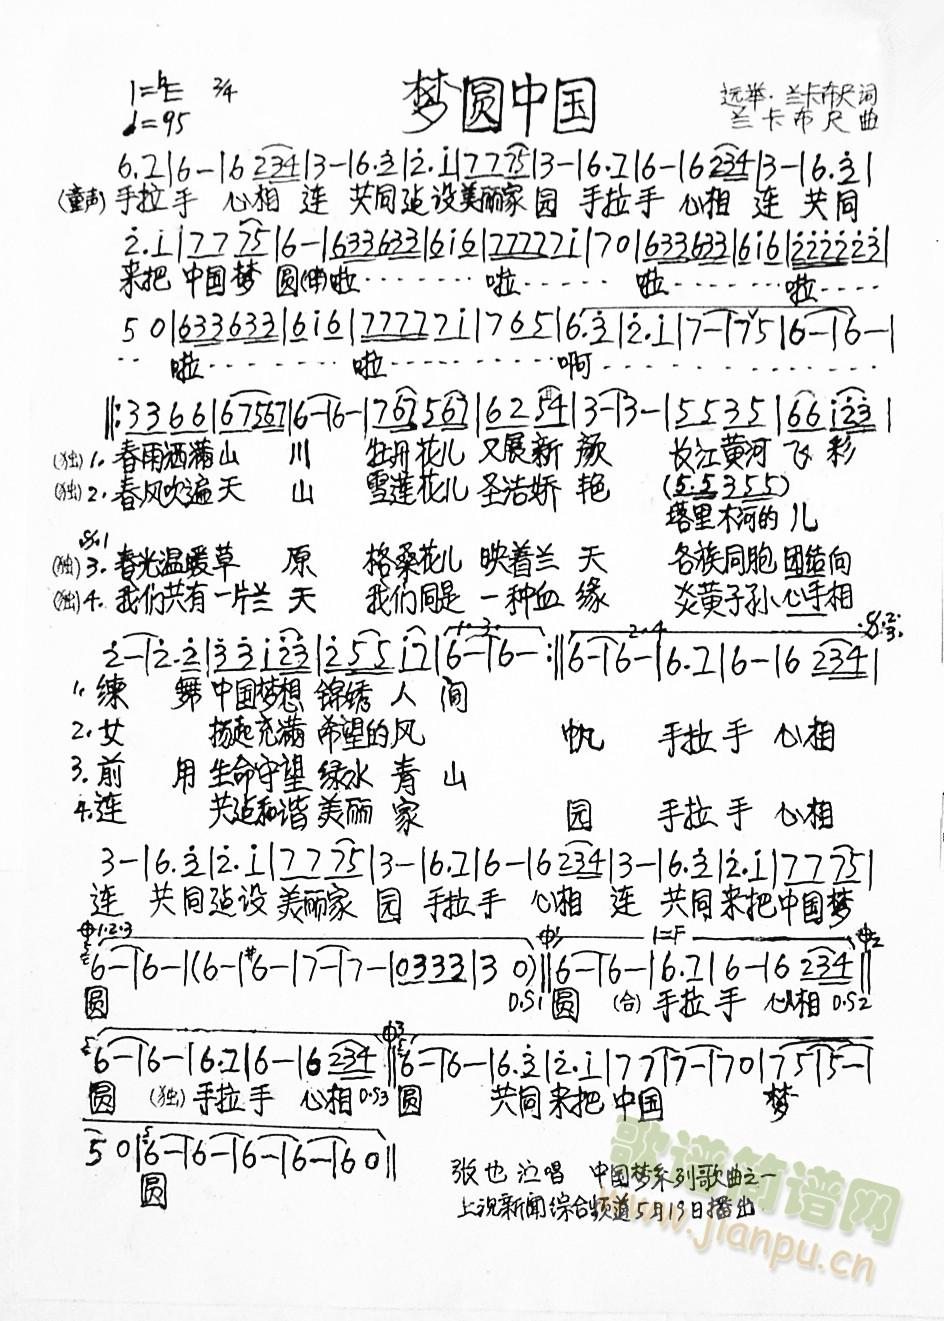 梦圆中国
1=♭E 2/4
♩=95
远举·兰卡布尺词
兰卡布尺曲
6.7|6-|6 234|3-|6.3|2.1|7 7 75|3-|6.7|6-|6 234|3-|6.3|
(童声) 手拉手 心相 连 共同 造设 美丽家 园 手拉手 心相 连 共同
2.1|7 7 75|6-|633633|616|777771|70|633633|616|2222223|
来把 中国梦 圆 啦········ 啦····· 啦···· 啦····
5 0|633633|616|777771|765|6.3|2.1|7-|75|6-|6-|
·· 啦········ 啦········· 啊·············
‖:3366|67567|6-|6-|767567|6254|3-|3-|5535|66123|
(独) 1. 春雨洒满山 川 牡丹花儿 又展新 颜 长江黄河 飞 彩
(独) 2. 春风吹遍天 山 雪莲花儿 圣洁娇 艳 (5.5 355)
塔里木河的 儿
𝄋1
(独) 3. 春光温暖草 原 格桑花儿 映着兰 天 各族同胞 团结向
(独) 4. 我们共有一片兰 天 我们同是 一种血 缘 炎黄子孙 心手相
1·3· 2·4 𝄋2. 3.
2-|2.2|33123|25517|6-|6-:‖6-|6-|6.7|6-|6 234|
1. 练 舞 中国梦想 锦绣 人 间
2. 女 扬起充满 希望的风 帆 手拉手 心相
3. 前 用 生命守望 绿水 青 山
4. 连 共造和谐 美丽 家 园 手拉手 心相
3-|6.3|2.1|7 7 75|3-|6.7|6-|6 234|3-|6.3|2.1|7 7 75|
连 共同 造设 美丽家 园 手拉手 心相 连 共同 来把 中国梦
1·2·3 1 1=F 2
6-|6-|(6-|#6-|7-|7-|0333|3 0)‖6-|6-|6.7|6-|6 234‖
圆 D.S1 圆 (合) 手拉手 心相 D.S2
3
6-|6-|6.7|6-|6 234‖6-|6-|6.3|2.1|77|7-|70|75|5-|
圆 (独) 手拉手 心相 D.S3 圆 共同 来把 中国 梦
5 0|6-|6-|6-|6-|60‖
圆
张也 演唱 中国梦系列歌曲之一
上视新闻综合频道5月19日播出
歌谱简谱网
www.jianpu.cn